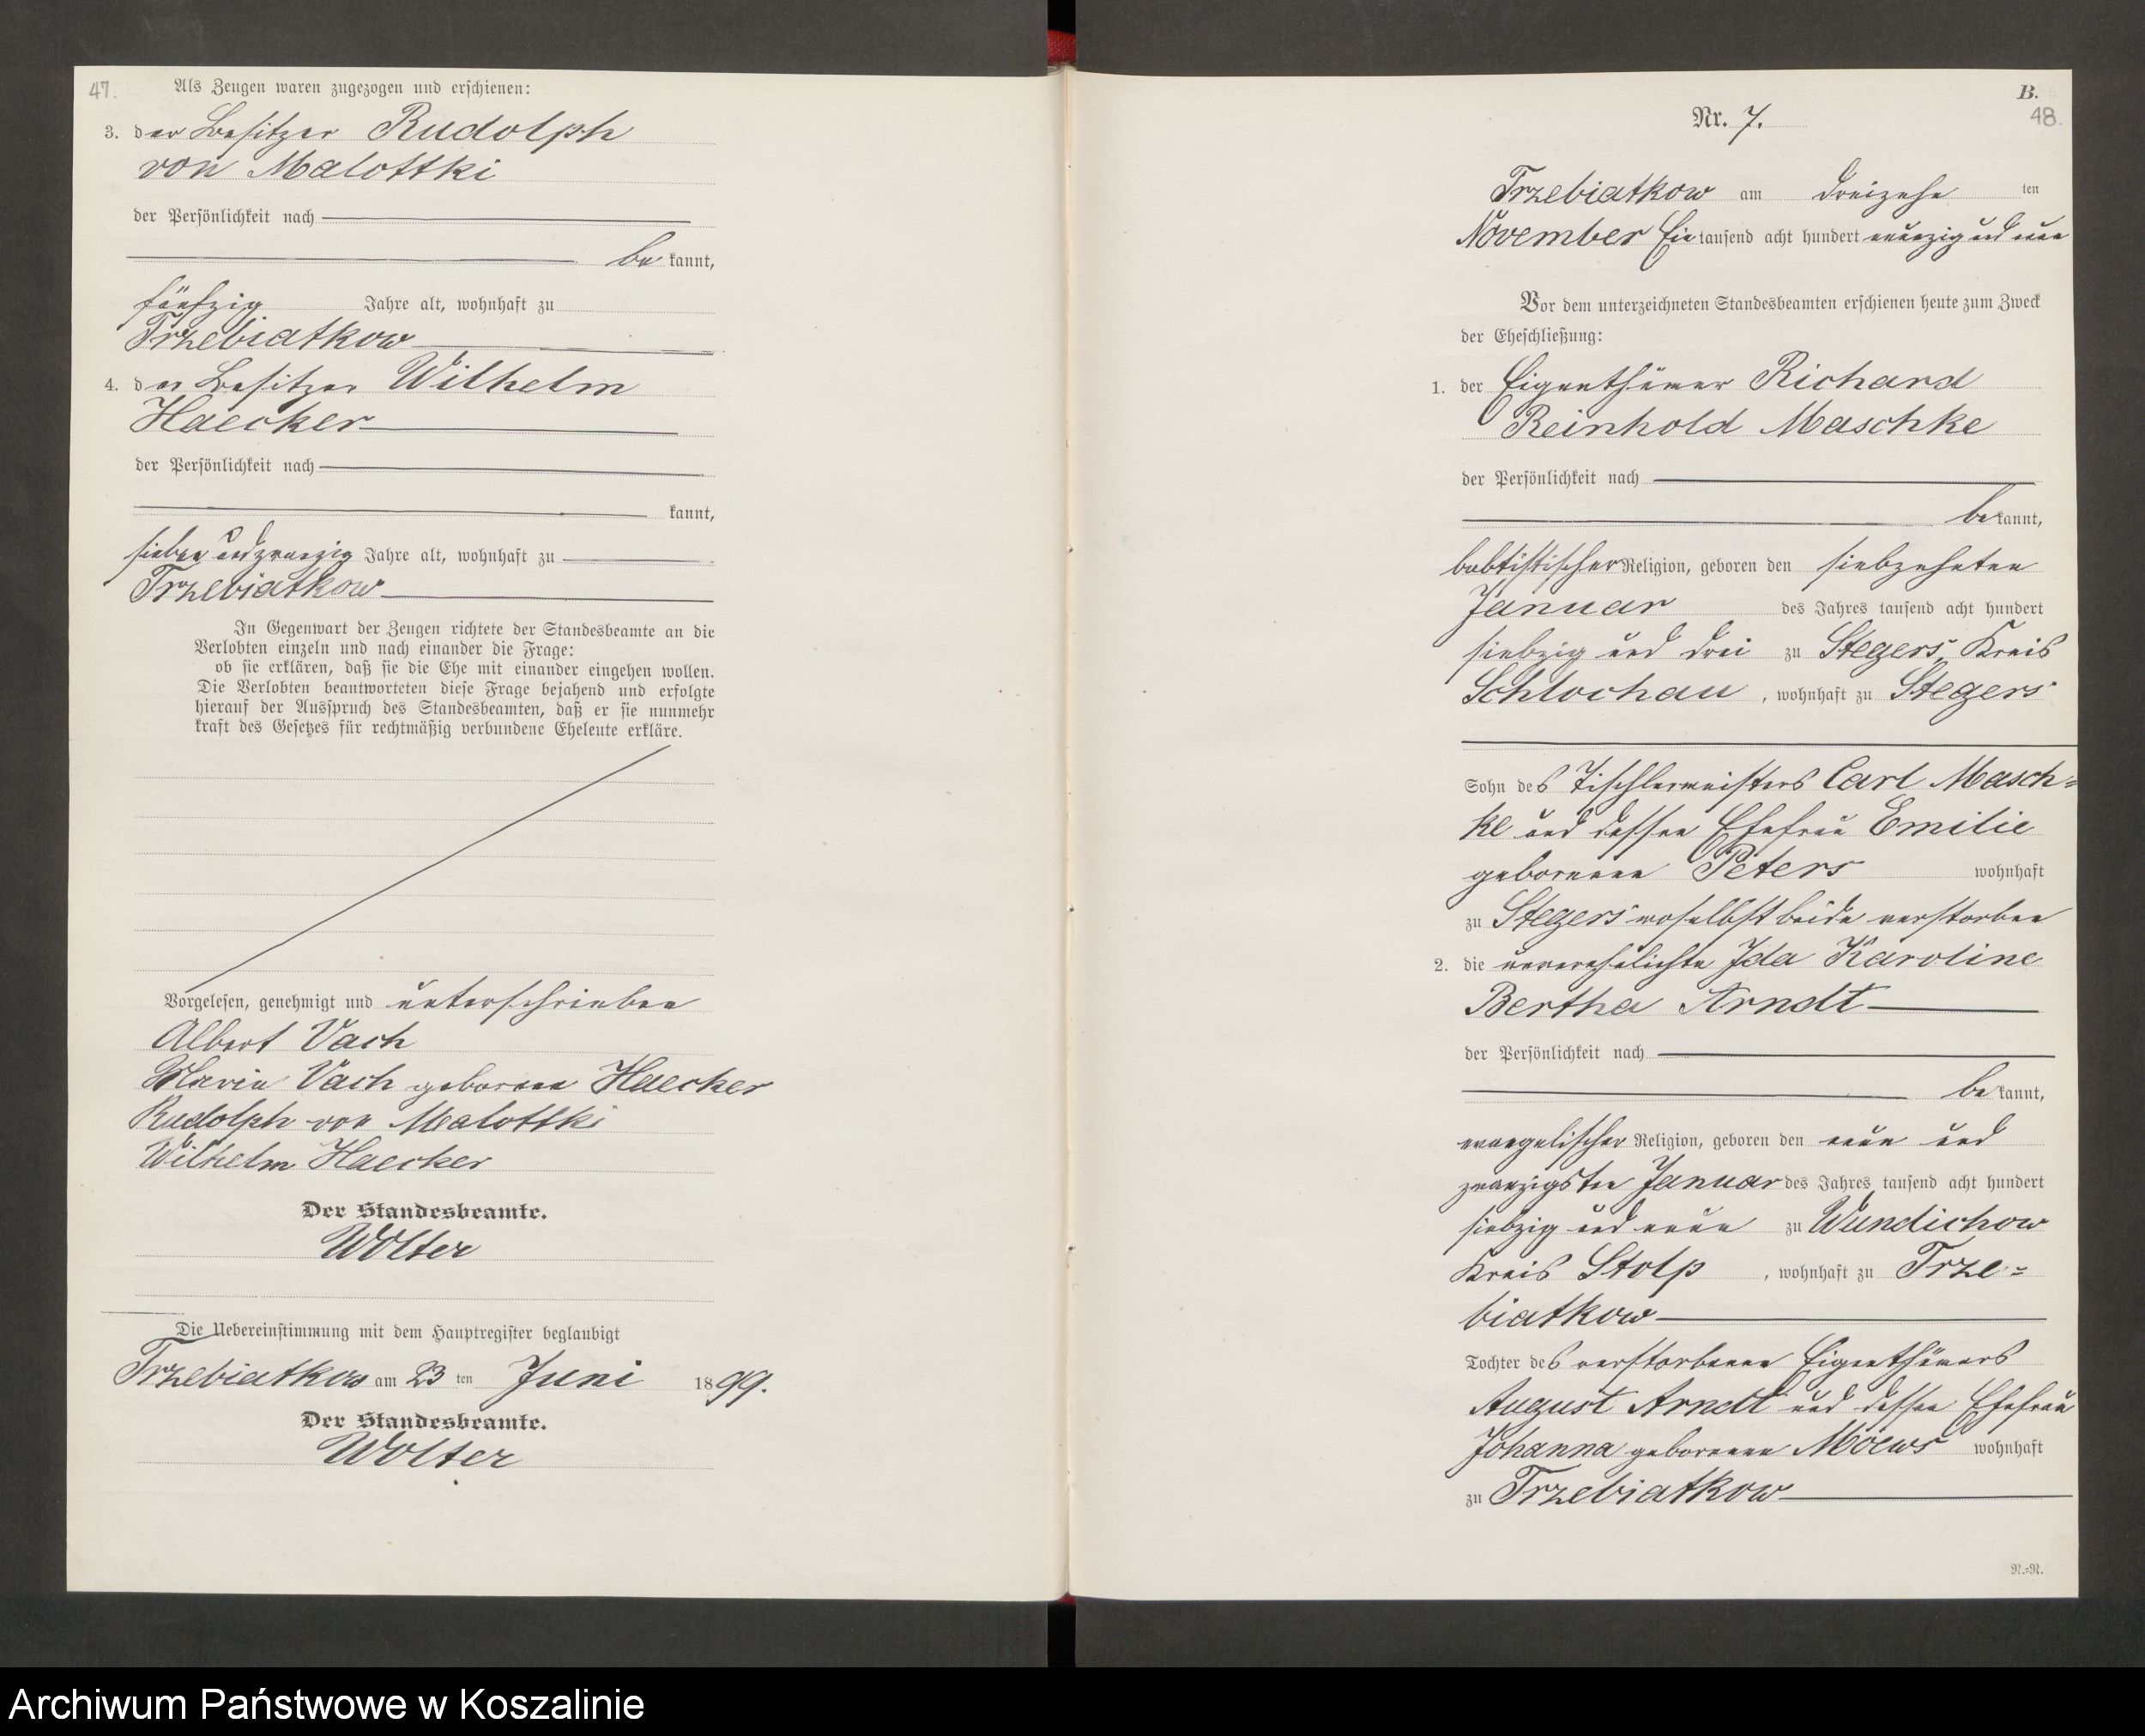 47.
Als Zeugen waren zugezogen und erschienen:
3. der Besitzer Rudolph
von Malottki
der Persönlichkeit nach
be kannt,
fünfzig Jahre alt, wohnhaft zu
Trzebiatkow
4. der Besitzer Wilhelm
Haecker
der Persönlichkeit nach
kannt,
sieben und zwanzig Jahre alt, wohnhaft zu
Trzebiatkow
In Gegenwart der Zeugen richtete der Standesbeamte an die
Verlobten einzeln und nach einander die Frage:
ob sie erklären, daß sie die Ehe mit einander eingehen wollen.
Die Verlobten beantworteten diese Frage bejahend und erfolgte
hierauf der Ausspruch des Standesbeamten, daß er sie nunmehr
kraft des Gesetzes für rechtmäßig verbundene Eheleute erkläre.
Vorgelesen, genehmigt und unterschrieben
Albert Vach
Maria Vach geborene Haecker
Rudolph von Malottki
Wilhelm Haecker
Der Standesbeamte.
Wolter
Die Uebereinstimmung mit dem Hauptregister beglaubigt
Trzebiatkow am 23 ten Juni 1899.
Der Standesbeamte.
Wolter
B.
48.
Nr. 7.
Trzebiatkow am dreizehn ten
November Ein tausend acht hundert neunzig und neun
Vor dem unterzeichneten Standesbeamten erschienen heute zum Zweck
der Eheschließung:
1. der Eigenthümer Richard
Reinhold Maschke
der Persönlichkeit nach
be kannt,
babtistischer Religion, geboren den siebzehnten
Januar des Jahres tausend acht hundert
siebzig und drei zu Stegers, Kreis
Schlochau, wohnhaft zu Stegers
Sohn des Tischlermeisters Carl Masch=
ke und dessen Ehefrau Emilie
geborenen Peters wohnhaft
zu Stegers woselbst beide verstorben
2. die unverehelichte Ida Karoline
Bertha Arndt
der Persönlichkeit nach
be kannt,
evangelischer Religion, geboren den neun und
zwanzigsten Januar des Jahres tausend acht hundert
siebzig und neun zu Wundichow
Kreis Stolp, wohnhaft zu Trze=
biatkow
Tochter des verstorbenen Eigenthümers
August Arndt und dessen Ehefrau
Johanna geborenen Möews wohnhaft
zu Trzebiatkow
N.=N.
Archiwum Państwowe w Koszalinie